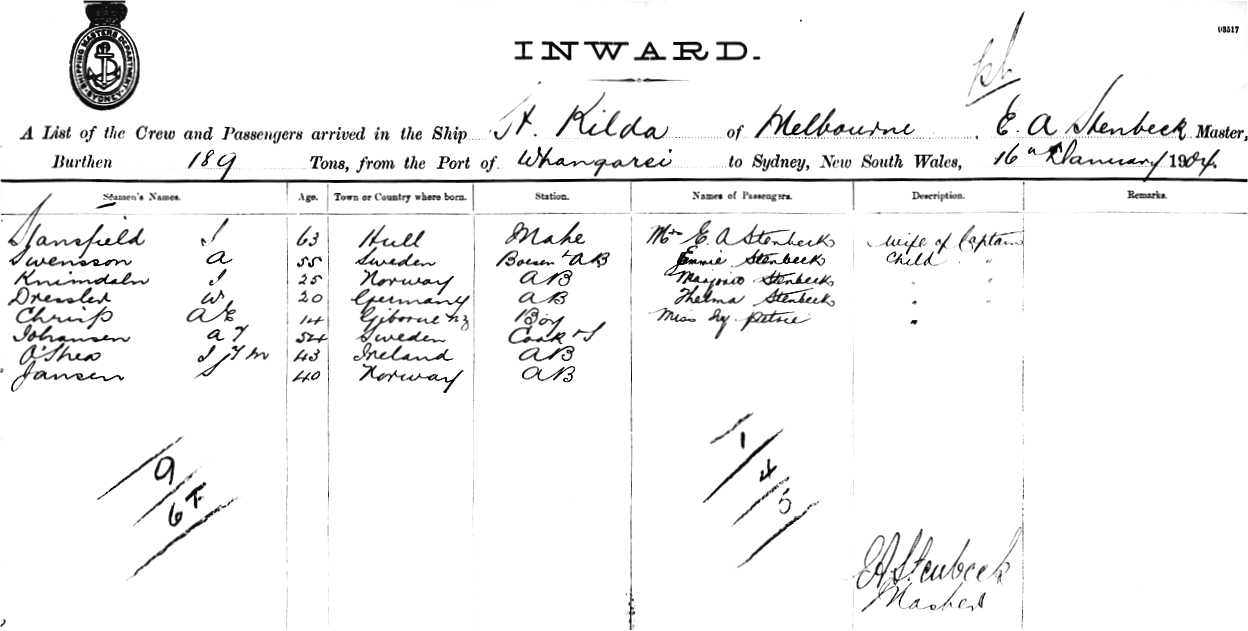 SHIPPING MASTERS DEPARTMENT SYDNEY
03517
INWARD.
A List of the Crew and Passengers arrived in the Ship St. Kilda of Melbourne, E. A Stenbeck Master,
Burthen 189 Tons, from the Port of Whangarei to Sydney, New South Wales, 16th January 1904.
Seamen's Names. Age. Town or Country where born. Station. Names of Passengers. Description. Remarks.
Stansfield J 63 Hull Mate Mrs E. A Stenbeck Wife of Captain
Swensson A 55 Sweden Bosen & AB Stenbeck Child "
J 25 Norway AB Marjorie Stenbeck " "
Dressler W 20 Germany AB Thelma Stenbeck " "
A E 14 Gisborne NZ Boy Miss Petrie "
Johansen A T 54 Sweden Cook & S
O'Shea J T M 43 Ireland AB
Jansen S 40 Norway AB
9
6
1
4
5
E A Stenbeck
Master